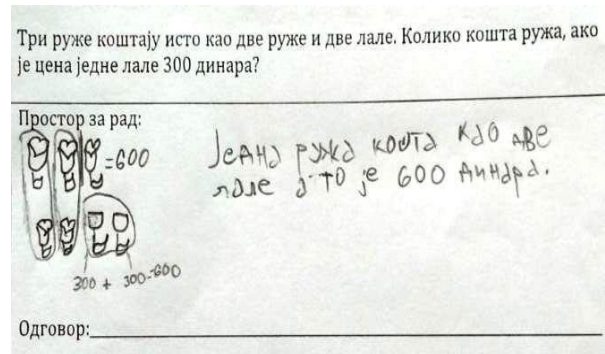 Три руже коштају исто као две руже и две лале. Колико кошта ружа, ако
је цена једне лале 300 динара?
Простор за рад:
=600
Једна ружа кошта као две
лале а то је 600 динара.
300 + 300=600
Одговор: